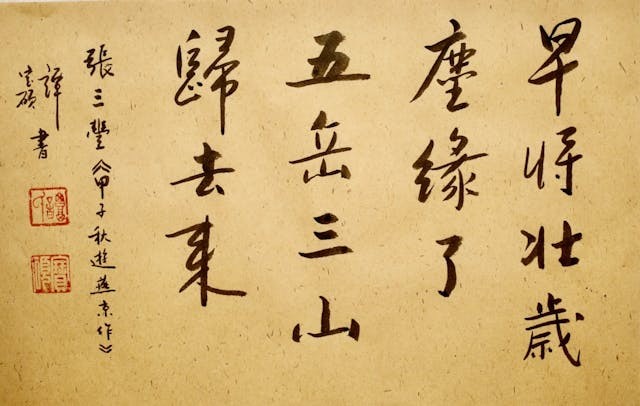 早将壮歳
塵缘了
五岳三山
歸去来
張三豐《甲子秋遊燕京作》
譚
書